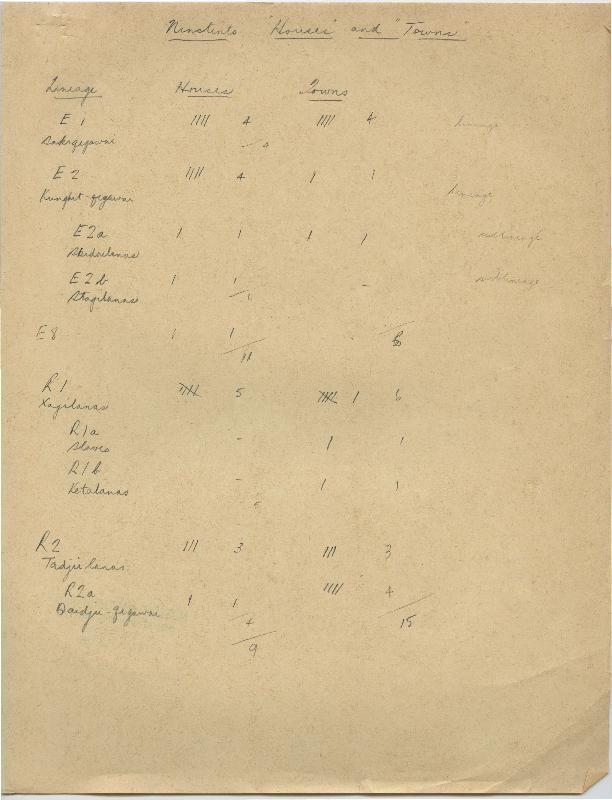 Ninstints "Houses" and "Towns"
Lineage Houses Towns
E 1 //// 4 //// 4 lineage
Sakigegawai 4
E 2 //// 4 / 1 lineage
Kunghit-gegawai
E2a / 1 / 1 sublineage
Skidailanas
E2b / 1 - sublineage
Stagilanas 1
E8 / 1 6
11
R1 //// 5 //// / 6
Xagilanas
R1a - / 1
Slaves
R1b - / 1
Ketalanas
5
R2 /// 3 /// 3
Tadjilanas
R2a / 1 //// 4
Daidji-gegawai
4 15
9